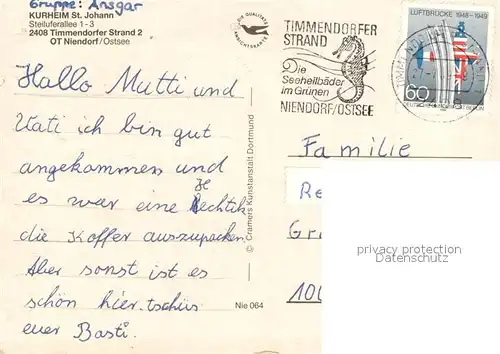 Gruppe: Ansgar
KURHEIM St. Johann
Steiluferallee 1 - 3
2408 Timmendorfer Strand 2
OT Niendorf/Ostsee
DIE QUALITÄTS
ANSICHTSKARTE
TIMMENDORFER
STRAND
Die
Seeheilbäder
im Grünen
NIENDORF/OSTSEE
LUFTBRÜCKE 1948-1949
60
DEUTSCHE BUNDESPOST BERLIN
Hallo Mutti und
Vati ich bin gut
angekommen und
es war eine Hechtik
die Koffer auszupacken.
Aber sonst ist es
schön hier. tschüs
euer Basti.
© Cramers Kunstanstalt Dortmund
Nie 064
Familie
Re
Gr
privacy protection
Datenschutz
100